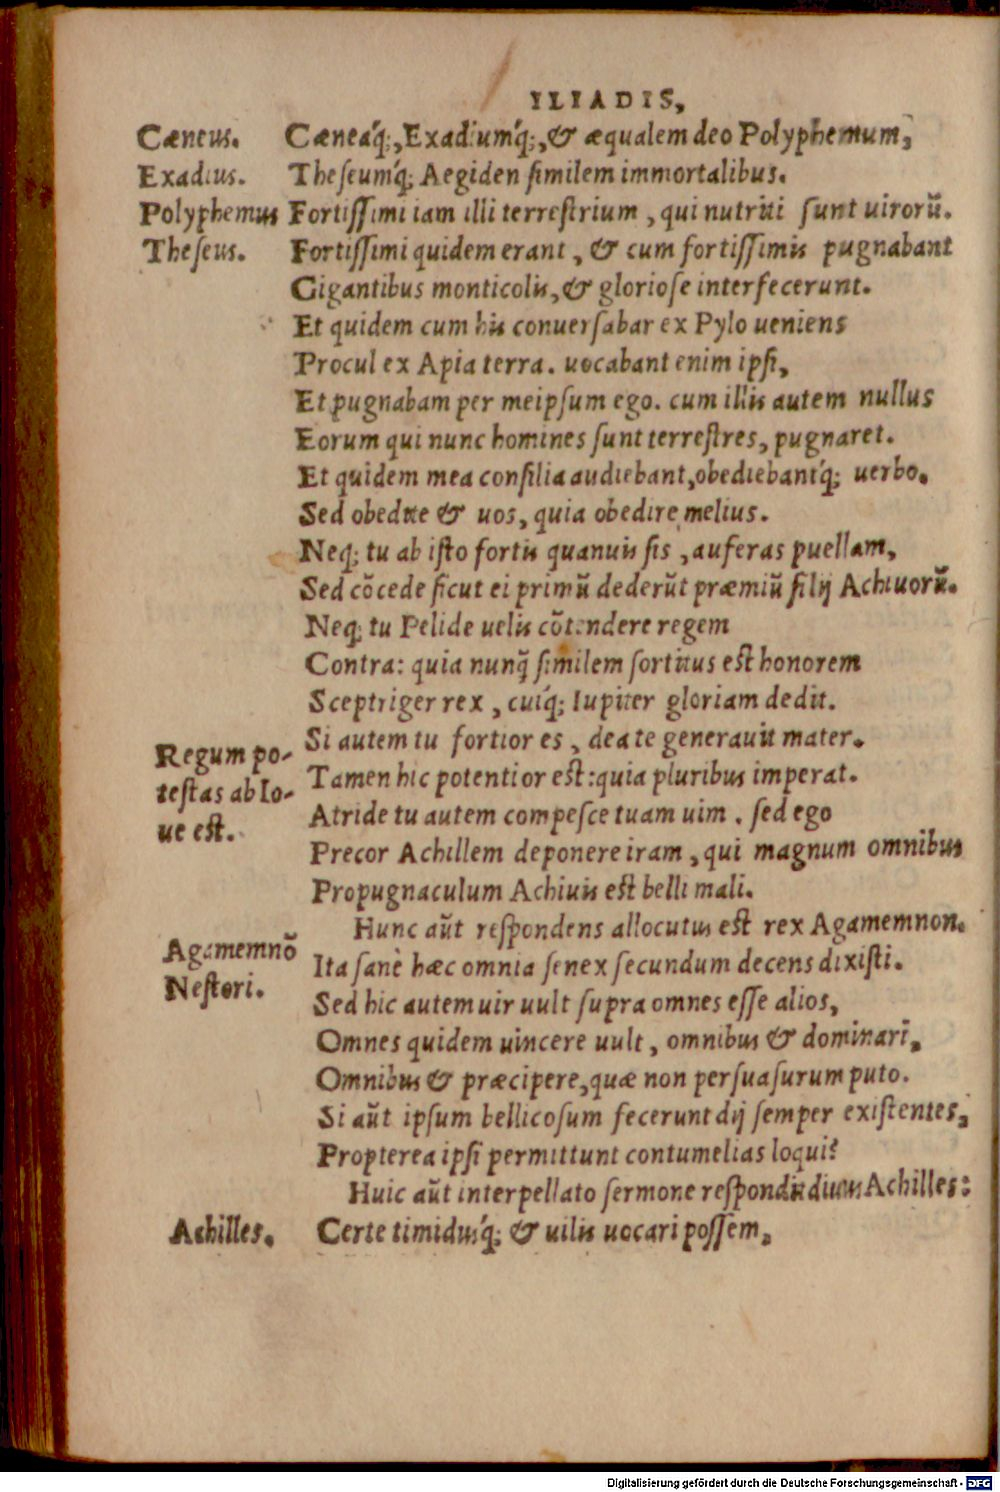 ILIADIS,
Cæneus. Cæneáq́;, Exadiumq́;, & æqualem deo Polyphemum,
Exadius. Theseumq́; Aegiden similem immortalibus.
Polyphemus Fortissimi iam illi terrestrium, qui nutriti sunt uirorũ.
Theseus. Fortissimi quidem erant, & cum fortissimis pugnabant
Gigantibus monticolis, & gloriose interfecerunt.
Et quidem cum his conuersabar ex Pylo ueniens
Procul ex Apia terra. uocabant enim ipsi,
Et pugnabam per meipsum ego. cum illis autem nullus
Eorum qui nunc homines sunt terrestres, pugnaret.
Et quidem mea consilia audiebant, obediebantq́; uerbo.
Sed obedite & uos, quia obedire melius.
Neq; tu ab isto fortis quanuis sis, auferas puellam,
Sed cõcede sicut ei primũ dederũt præmiũ filij Achiuorũ.
Neq; tu Pelide uelis cõtendere regem
Contra: quia nunq̃ similem sortitus est honorem
Sceptriger rex, cuiq́; Iupiter gloriam dedit.
Si autem tu fortior es, dea te generauit mater.
Regum po-
testas ab Io-
ue est.
Tamen hic potentior est: quia pluribus imperat.
Atride tu autem compesce tuam uim. sed ego
Precor Achillem deponere iram, qui magnum omnibus
Propugnaculum Achiuis est belli mali.
Hunc aũt respondens allocutus est rex Agamemnon.
Agamemnõ
Nestori.
Ita sanè hæc omnia senex secundum decens dixisti.
Sed hic autem uir uult supra omnes esse alios,
Omnes quidem uincere uult, omnibus & dominari,
Omnibus & præcipere, quæ non persuasurum puto.
Si aũt ipsum bellicosum fecerunt dij semper existentes,
Propterea ipsi permittunt contumelias loqui?
Huic aũt interpellato sermone respondit diuus Achilles:
Achilles. Certe timidusq́; & uilis uocari possem,
Digitalisierung gefördert durch die Deutsche Forschungsgemeinschaft - DFG